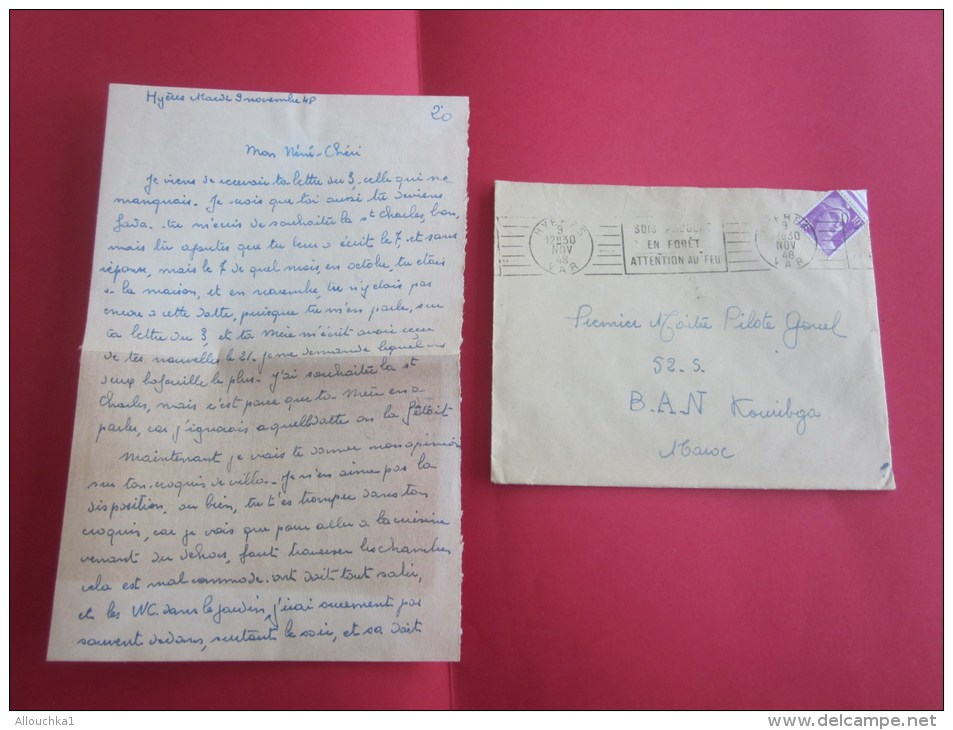 Hyères Mardi 9 novembre 48
20
Mon Néné-Chéri
Je viens de recevoir ta lettre du 3, celle qui me
manquait. Je vois que toi aussi tu deviens
fada. tu m'écris de souhaiter la St Charles, bon,
mais tu ajoutes que tu leur a écrit le 7, et sans
réponse, mais le 7 de quel mois, en octobre, tu étais
à la maison, et en novembre, tu n'y étais pas
encore a cette datte, puisque tu m'en parle, sur
ta lettre du 3, et ta Mère m'écrit avoir reçu
de tes nouvelles le 21. je me demande lequel des
deux bafouille le plus. J'ai souhaitée la St
Charles, mais c'est parce que ta Mère en a
parler, car j'ignorais a quelle datte on la fêtait.
Maintenant je vais te donner mon opinion
sur ton croquis de villa. Je n'en aime pas la
disposition, ou bien, tu t'es tromper dans ton
croquis, car je vois que pour aller a la cuisine
venant du dehors, faut traverser les chambres
cela est mal commode. on doit tout salir,
et les WC. dans le jardin, j'irai surement pas
souvent dedans, surtout le soir, et sa doit
HYERES
9
12H30
NOV
48
VAR
SOIS PRUDENT
EN FORÊT
ATTENTION AU FEU
HYERES
9
12H30
NOV
48
VAR
Premier Maître Pilote Gorel
52. S.
B.A.N Kouribga
Maroc
Allouchka1
www.delcampe.net